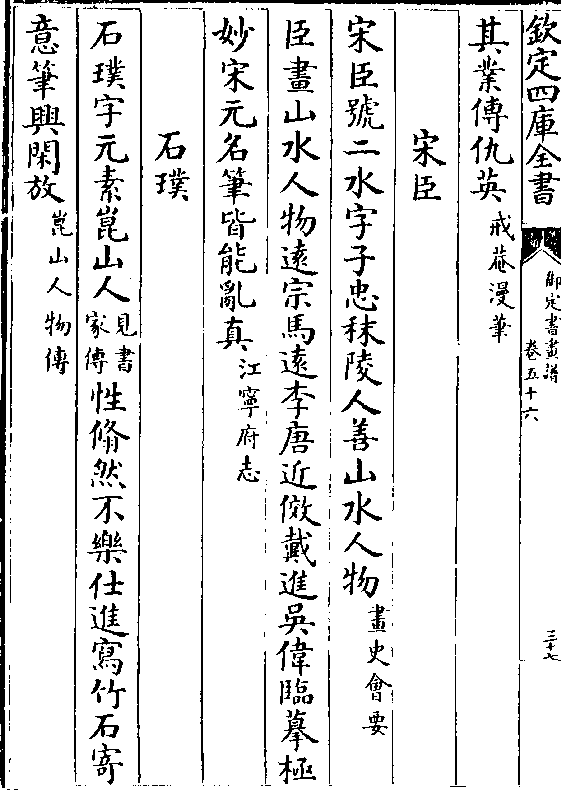 欽定四庫全書
御定書畫譜
卷五十六
三十七
其業傳仇英戒菴漫筆
宋臣
宋臣號二水字子忠秣陵人善山水人物畫史會要
臣畫山水人物遠宗馬遠李唐近倣戴進吳偉臨摹極
妙宋元名筆皆能亂真江寧府志
石璞
石璞字元素崑山人見書家傳性翛然不樂仕進寫竹石寄
意筆興閑放崑山人物傳